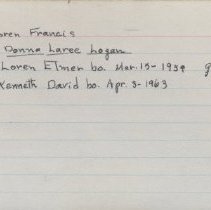 oren Francis
Donna Laree Logan
Loren Elmer bo. Mar. 15-1959 g
Kenneth David bo. Apr. 3-1963